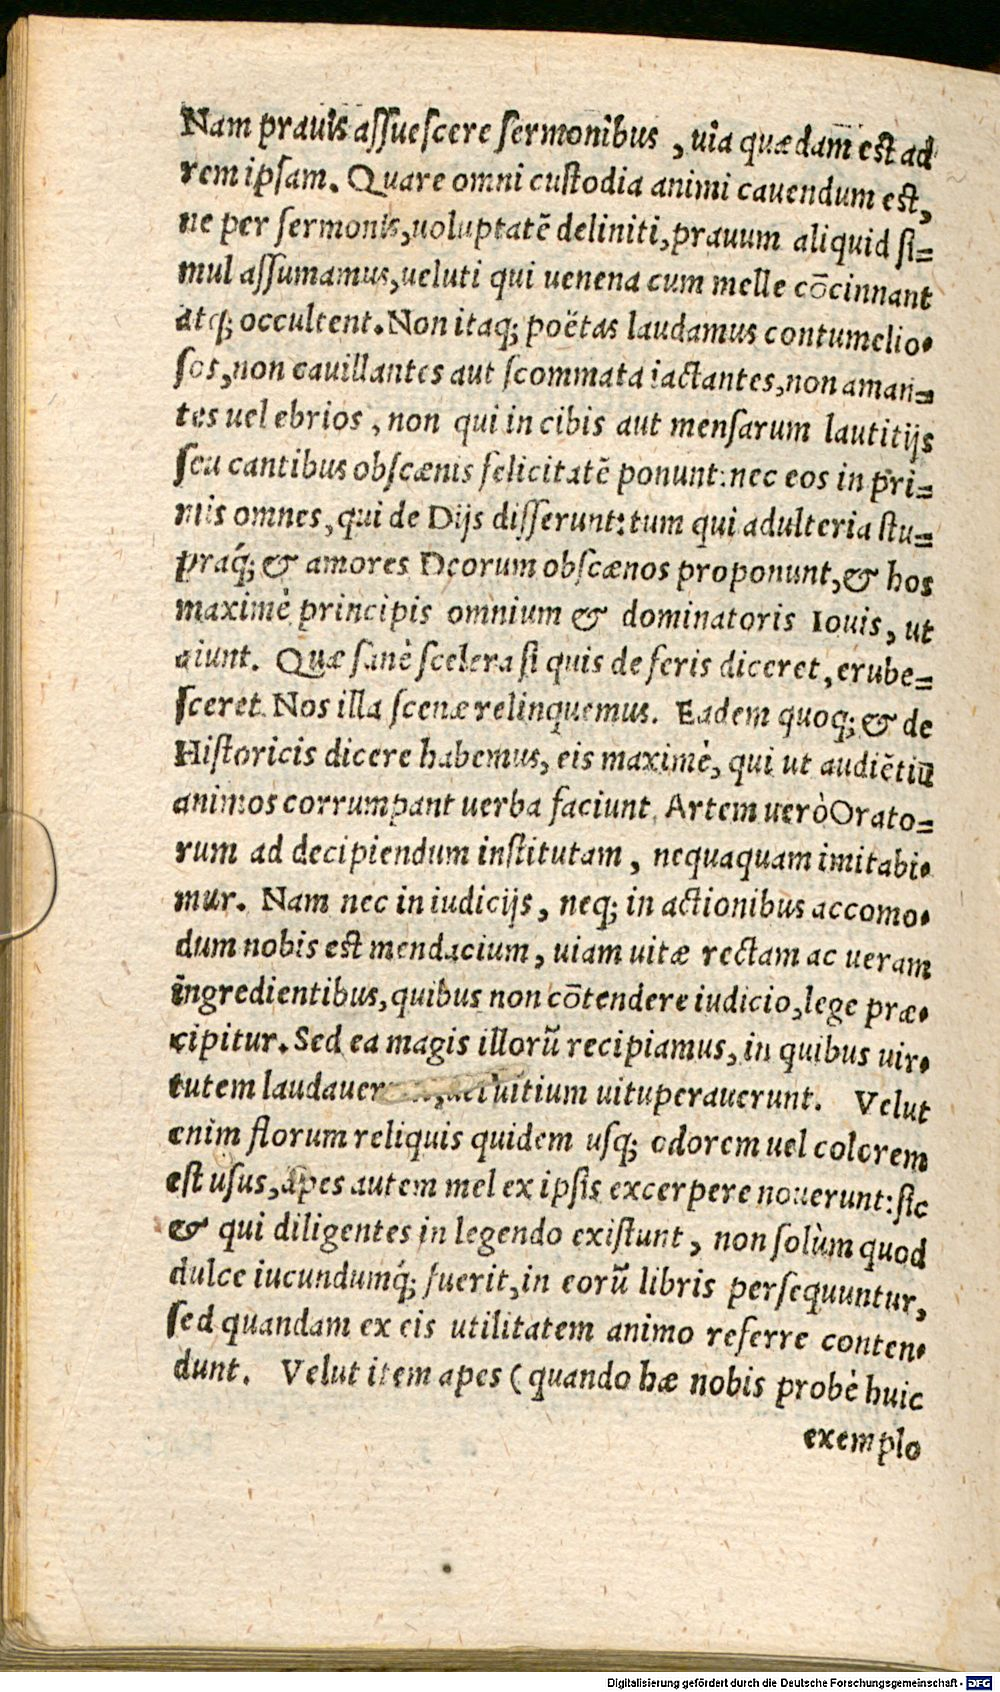 Nam prauis assuescere sermonibus , uia quædam est ad
rem ipsam. Quare omni custodia animi cauendum est,
ne per sermonis, uoluptatē deliniti, prauum aliquid si-
mul assumamus, ueluti qui uenena cum melle cōcinnant
atq; occultent. Non itaq; poëtas laudamus contumelio-
sos, non cauillantes aut scommata iactantes, non aman-
tes uel ebrios , non qui in cibis aut mensarum lautitijs
seu cantibus obscœnis felicitatē ponunt: nec eos in pri-
mis omnes, qui de Dijs disserunt: tum qui adulteria stu-
praq́; & amores Deorum obscœnos proponunt, & hos
maximè principis omnium & dominatoris Iouis, ut
aiunt. Quæ sanè scelera si quis de feris diceret, erube-
sceret. Nos illa scenæ relinquemus. Eadem quoq; & de
Historicis dicere habemus, eis maximè, qui ut audiētiū
animos corrumpant uerba faciunt. Artem uerò Orato-
rum ad decipiendum institutam , nequaquam imitabi-
mur. Nam nec in iudicijs, neq; in actionibus accomo-
dum nobis est mendacium, uiam uitæ rectam ac ueram
ingredientibus, quibus non cōtendere iudicio, lege præ-
cipitur. Sed ea magis illorū recipiamus, in quibus uir-
tutem laudauer uitium uituperauerunt. Velut
enim florum reliquis quidem usq; odorem uel colorem
est usus, apes autem mel ex ipsis excerpere nouerunt: sic
& qui diligentes in legendo existunt, non solùm quod
dulce iucundumq́; fuerit, in eorū libris persequuntur,
sed quandam ex eis utilitatem animo referre conten-
dunt. Velut item apes (quando hæ nobis probè huic
exemplo
Digitalisierung gefördert durch die Deutsche Forschungsgemeinschaft - DFG